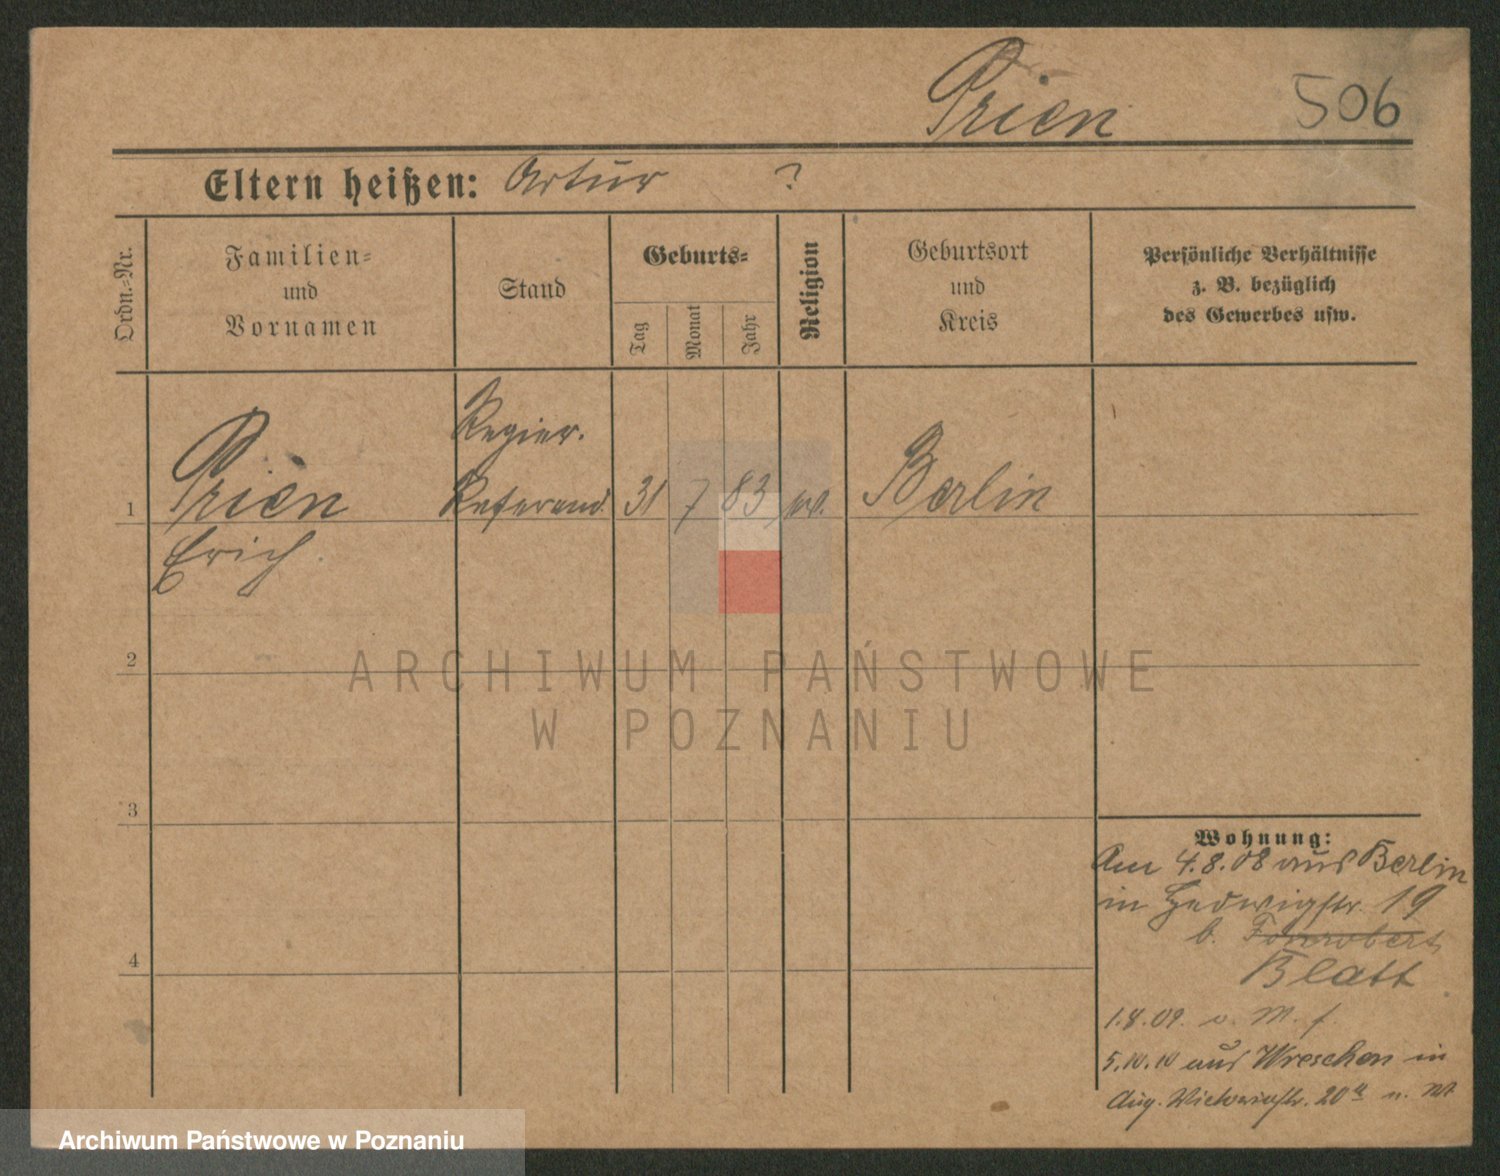 Prien 506
Eltern heißen: Artur ?
Ordn.-Nr.
Familien-
und
Vornamen
Stand
Geburts-
Tag
Monat
Jahr
Religion
Geburtsort
und
Kreis
Persönliche Verhältnisse
z. B. bezüglich
des Gewerbes usw.
Regier.
1 Prien Referend. 31 7 83 Berlin
Erich.
2
3
4
Wohnung:
Am 4.8.08 aus Berlin
in Hedwigstr. 19
b. Fonrobert
Blatt
1.8.09.
5.10.10 aus Wreschen in
Aug. Victoriastr. 20
ARCHIWUM PAŃSTWOWE
W POZNANIU
Archiwum Państwowe w Poznaniu